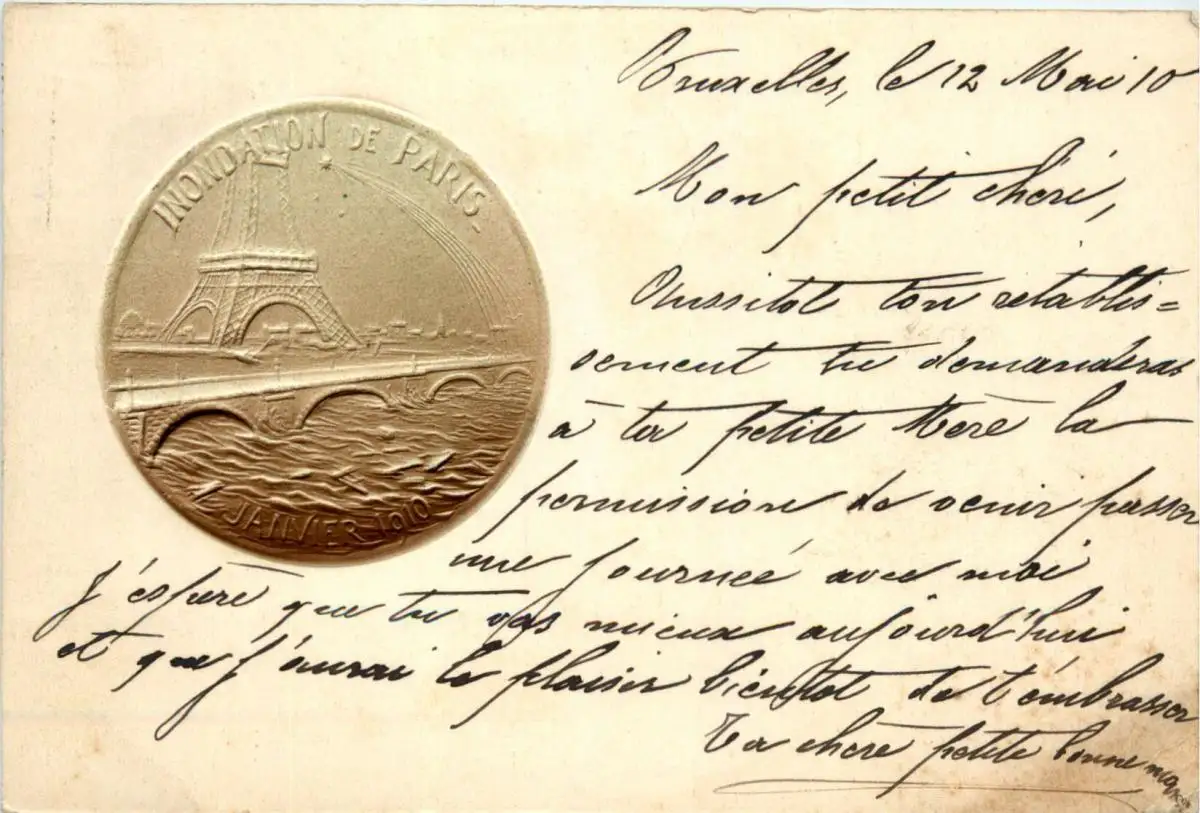 INONDATION DE PARIS
JANVIER 1910
Bruxelles, le 12 Mai 10
Mon petit chéri,
Aussitot ton rétablis=
sement tu demanderas
à ta petite Mère la
permission de venir passer
une journée avec moi
J'éspère que tu vas mieux aujourd'hui
et que j'aurai le plaisir bientot de t'embrasser
Ta chère petite bonne